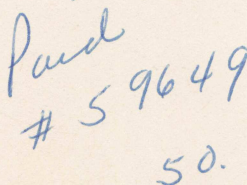 Paid
# 59649
50.